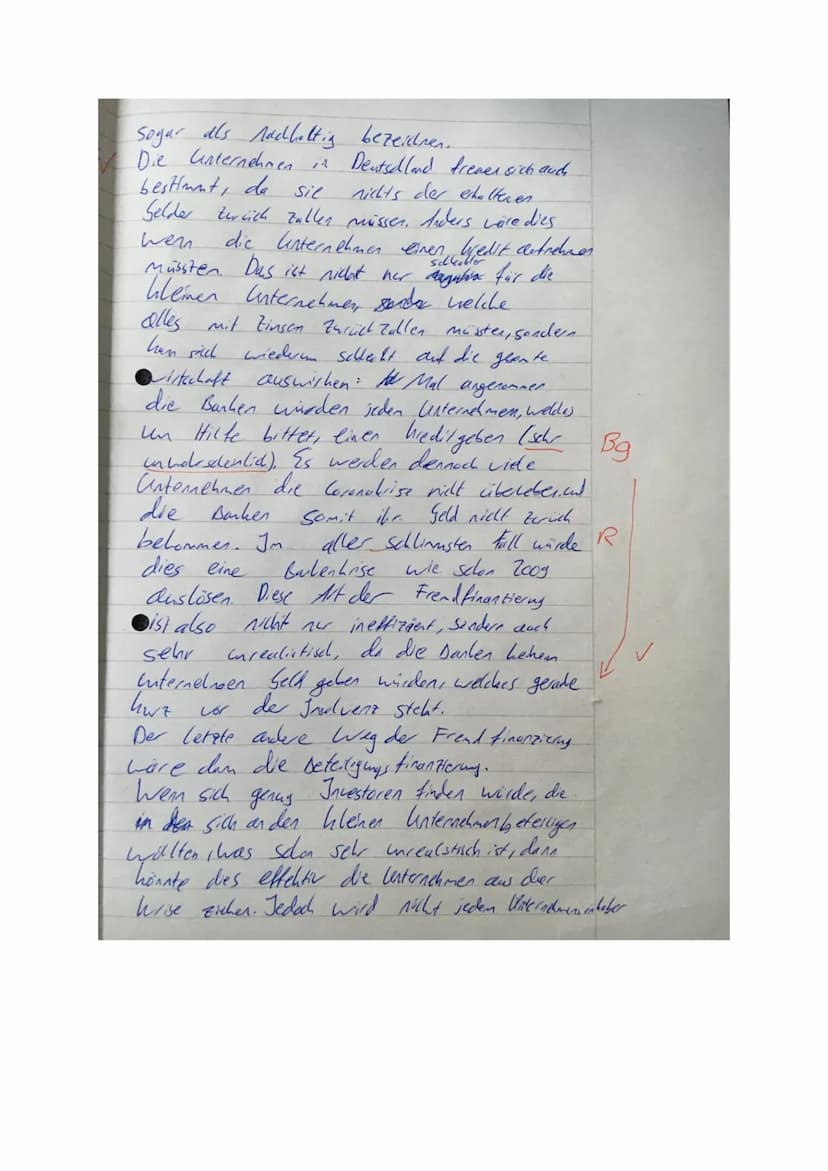 sogar als nachhaltig bezeichnen.
Die Unternehmen in Deutschland freuen sich auch
bestimmt, da sie nichts der erhaltenen
Gelder zurück zahlen müssen. Anders wäre dies
wenn die Unternehmen einen Kredit aufnehmen
müssten. Das ist nicht nur schlechter für die
kleinen Unternehmen, welche
alles mit Zinsen zurück zahlen müssten, sondern
kann sich wiederum schlecht auf die gesamte
Wirtschaft auswirken: Mal angenommen
die Banken würden jeden Unternehmen, welches
um Hilfe bittet, einen Kredit geben (sehr
unwahrscheinlich). Es werden dennoch viele
Unternehmen die Coronakrise nicht überleben und
die Banken somit ihr Geld nicht zurück
bekommen. Im aller schlimmsten Fall würde
dies eine Bankenkrise wie schon 2009
auslösen. Diese Art der Fremdfinanzierung
ist also nicht nur ineffizient, sondern auch
sehr unrealistisch, da die Banken keinem
Unternehmen Geld geben würden, welches gerade
kurz vor der Insolvenz steht.
Der letzte andere Weg der Fremdfinanzierung
wäre dann die Beteiligungsfinanzierung.
Wenn sich genug Investoren finden würde, die
sich an den kleinen Unternehmen beteiligen
wollten, was schon sehr unrealistisch ist, dann
könnte dies effektiv die Unternehmen aus der
Krise ziehen. Jedoch wird nicht jedem Unternehmensinhaber
Bg
R